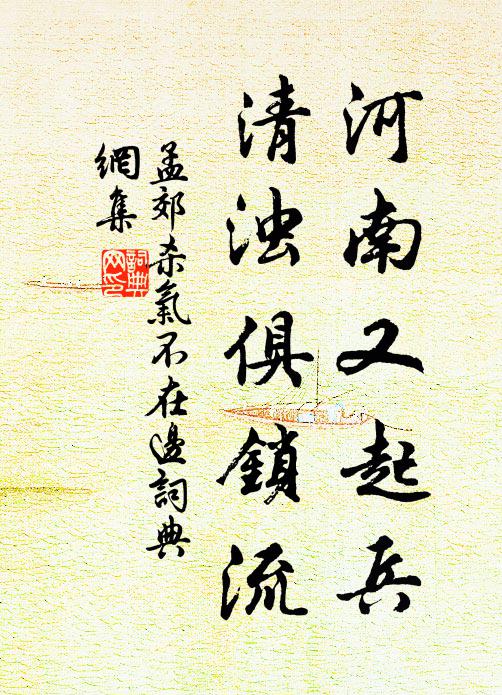 河南又起兵
清浊俱鎖流
孟郊杀氣不在邊詞典
網集
詞典網印